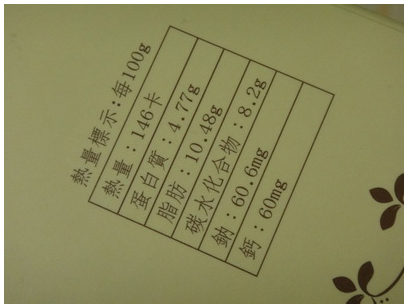 熱量標示:每100g
熱量:146卡
蛋白質:4.77g
脂肪:10.48g
碳水化合物:8.2g
鈉:60.6mg
鈣:60mg